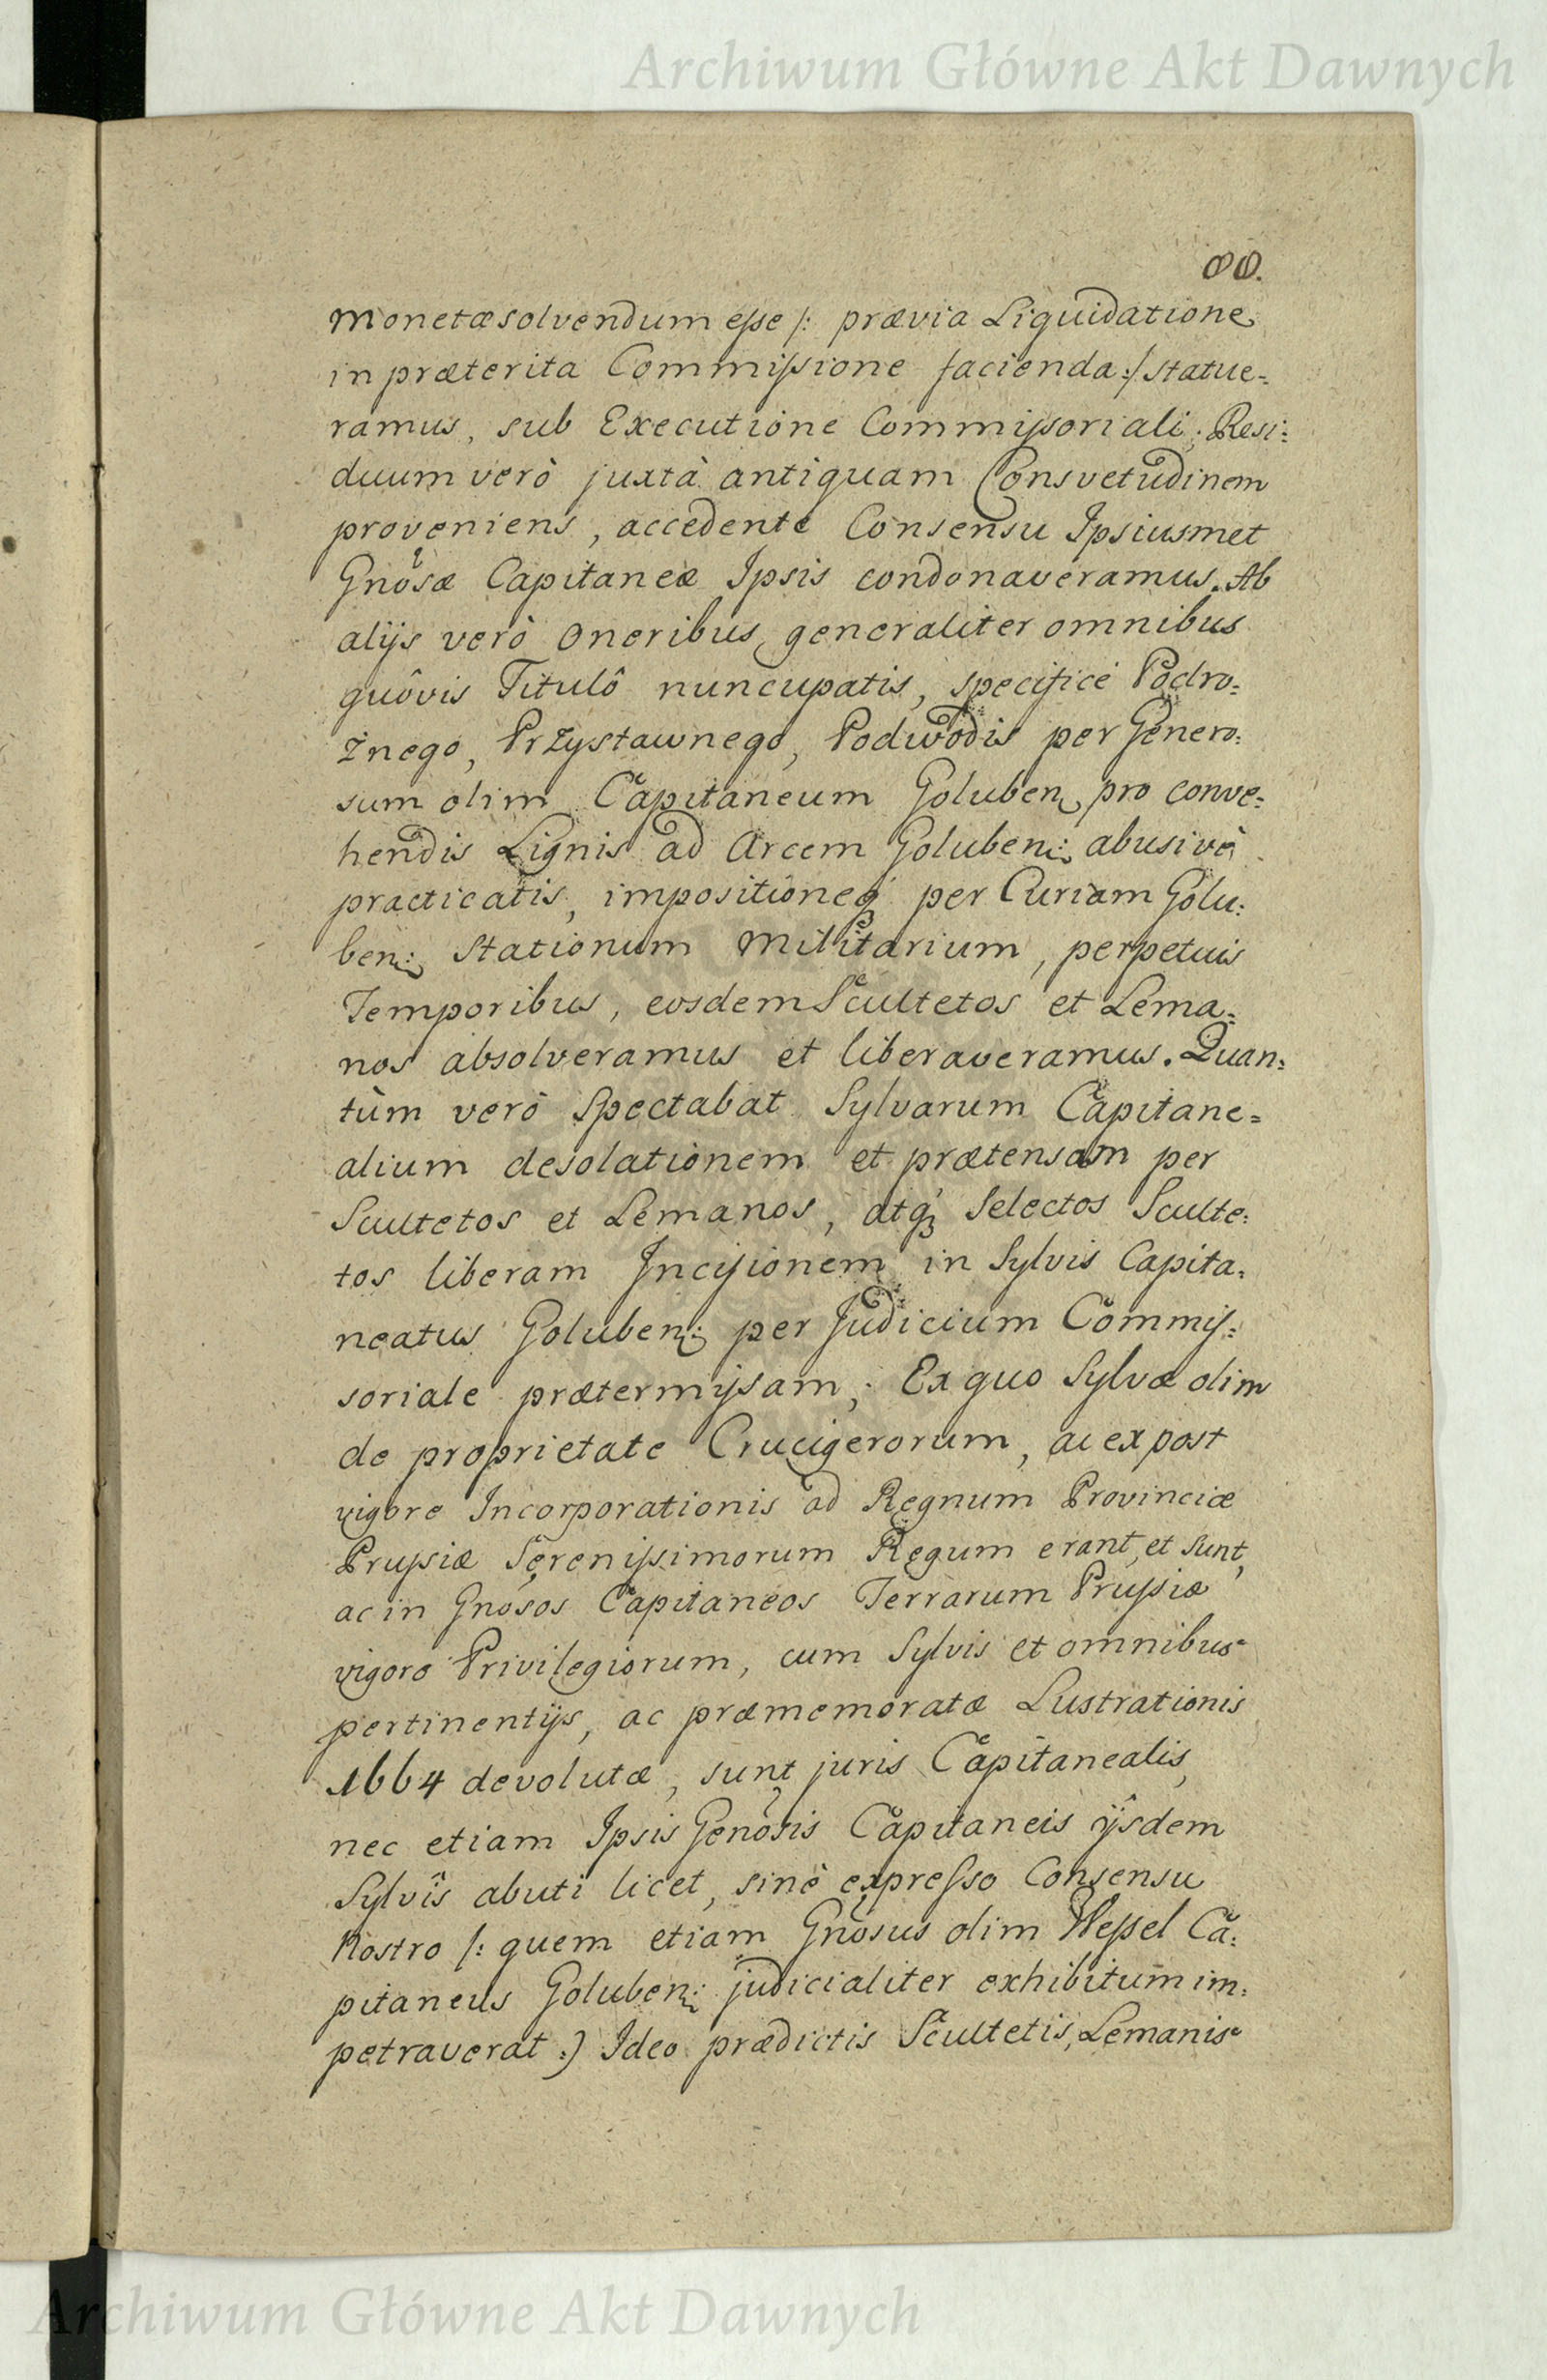 Archiwum Główne Akt Dawnych
monetæ solvendum esse /: prævia Liquidatione
in præterita Commissione facienda :/ statue=
ramus, sub Executione Commissoriali. Resi=
duum verò juxtà antiquam Consvetudinem
proveniens, accedente Consensu Ipsiusmet
Gnosæ Capitaneæ Ipsis condonaveramus. Ab
alijs verò Oneribus generaliter omnibus
quôvis Titulô nuncupatis, specificè Podro=
żnego, Przystawnego, Podwodis per Genero=
sum olim Capitaneum Goluben: pro conve=
hendis Lignis ad Arcem Goluben: abusivè
practicatis, impositioneq; per Curiam Golu=
ben: Stationum Militarium, perpetuis
Temporibus, eosdem Scultetos et Lema=
nos absolveramus et liberaveramus. Quan=
tùm verò Spectabat Sylvarum Capitane=
alium desolationem et prætensam per
Scultetos et Lemanos, atq; Selectos Sculte=
tos liberam Incisionem in Sylvis Capita=
neatus Goluben: per Judicium Commis=
soriale prætermissam; Ex quo Sylvæ olim
de proprietate Crucigerorum, ac ex post
vigore Incorporationis ad Regnum Provinciæ
Prussiæ Serenissimorum Regum erant, et sunt,
ac in Gnosos Capitaneos Terrarum Prussiæ
vigore Privilegiorum, cum Sylvis et omnibus
pertinentijs, ac præmemoratæ Lustrationis
1664 devolutæ, sunt juris Capitanealis,
nec etiam Ipsis Genosis Capitaneis ijsdem
Sylvis abuti licet, sinè expresso Consensu
Nostro /: quem etiam Gnosus olim Wessel Ca=
pitaneus Goluben: judicialiter exhibitum im=
petraverat :) Ideo prædictis Scultetis, Lemanis
Archiwum Główne Akt Dawnych